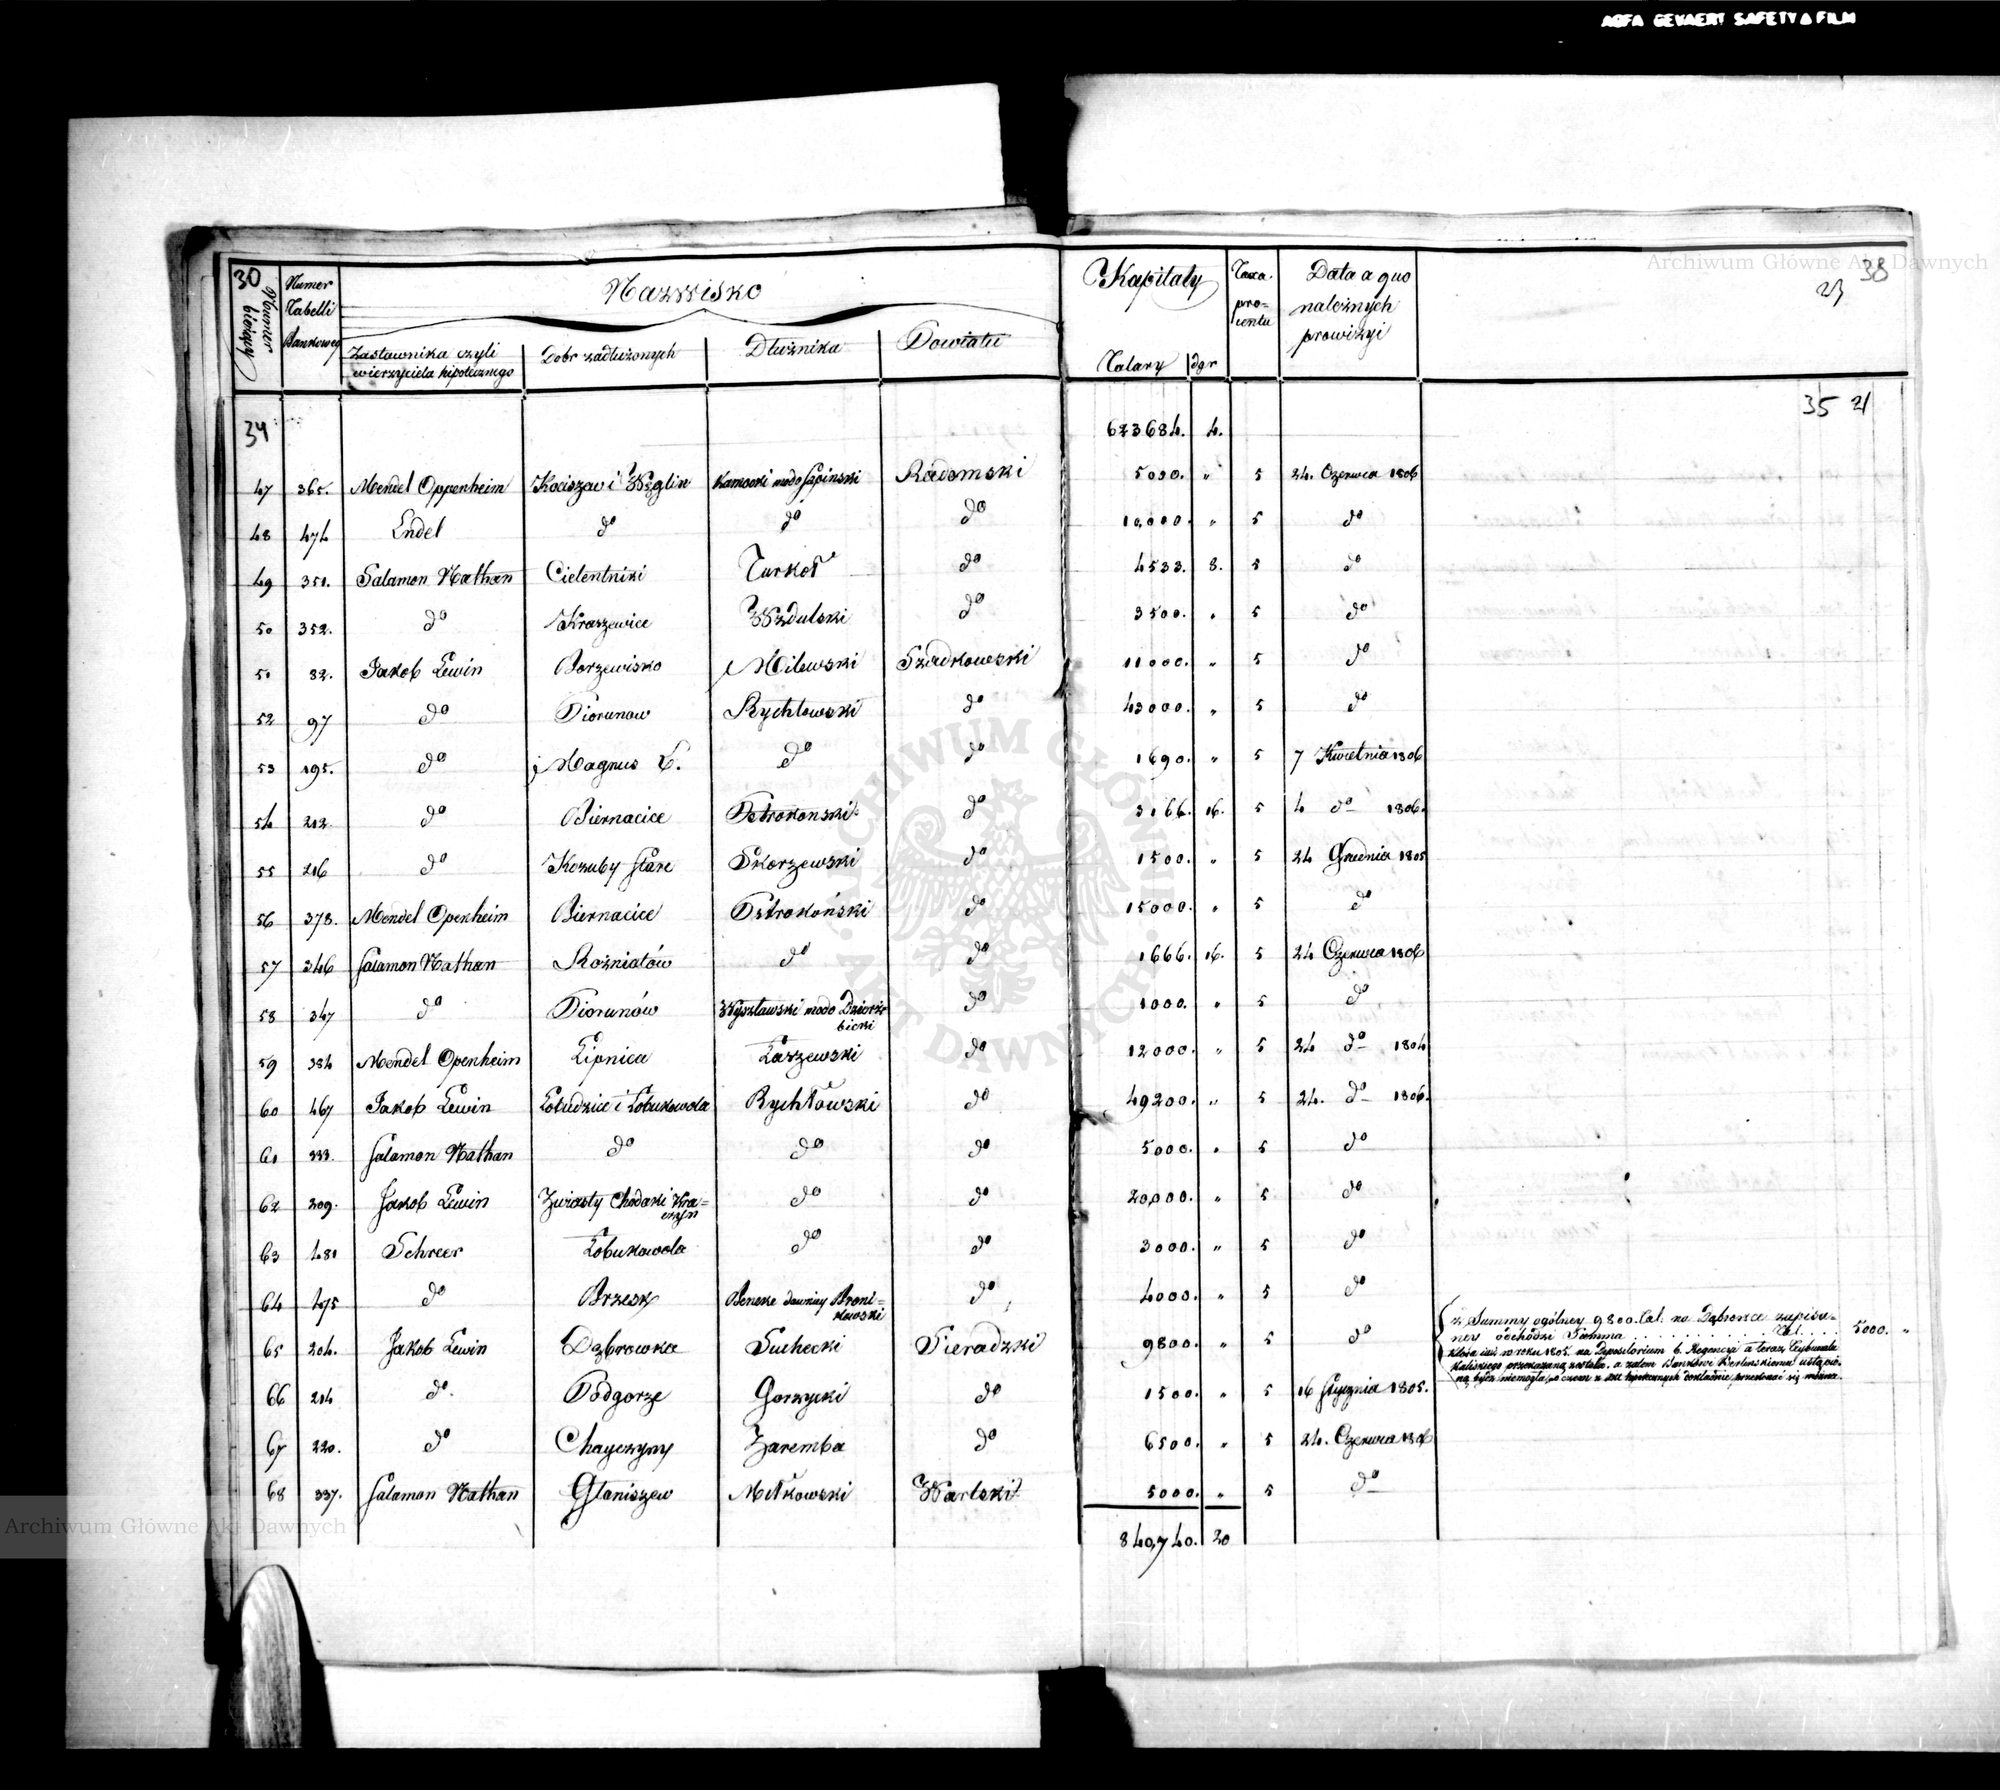 AGFA GEVAERT SAFETY FILM
Archiwum Główne Akt Dawnych
30 38
23
Numer bieżący
Numer Tabelli Bankowey
Nazwisko
Zastawnika czyli wierzyciela hipotecznego
Dobr zadłużonych
Dłużnika
Powiatu
Kapitały
Talary dgr
Taxa procentu
Data a quo należnych prowizyi
35 21
34 673684. 4.
47 365. Mendel Oppenheim Kociszew i Węglin Kamocki modo Łapinski Radomski 5000. " 5 24. Czerwca 1806
48 474 Endel do do do 10,000. " 5 do
49 351. Salamon Nathan Cielentniki Turkoł do 4533. 8. 5 do
50 352. do Kraszewice Wzdulski do 3500. " 5 do
51 82. Jakob Lewin Borzewisko Milewski Szadkowski 11000. " 5 do
52 97 do Piorunow Rychłowski do 43000. " 5 do
53 195. do Magnus C. do do 1690. " 5 7 Kwietnia 1806
54 212. do Biernacice Ostrokonski do 3166. 16. 5 4 do 1806.
55 216 do Kozuby stare Skorzewski do 1500. " 5 24 Grudnia 1805
56 378. Mendel Openheim Biernacice Ostrokoński do 15000. " 5 do
57 346 Salamon Nathan Rożniatów do do 1666. 16. 5 24 Czerwca 1806
58 347 do Piorunów Wyszławski modo Dzierżbicki do 1000. " 5 do
59 384 Mendel Openheim Lipnica Łaszewski do 12000. " 5 24 do 1804
60 467 Jakob Lewin Łobudzice i Łobukowola Rychłowski do 49200. " 5 24. do 1806.
61 333. Salamon Nathan do do do 5000. " 5 do
62 209. Jakob Lewin Zwiasty Chodaki Kraczyn do do 20,000. " 5 do
63 481 Schreer Łobukowola do do 3000. " 5 do
64 475 do Brzesk Beneke dawniey Bronikowski do 4000. " 5 do
65 204. Jakob Lewin Dąbrowka Suchecki Sieradzki 9800. " 5 do
z Summy ogólney 9800. tal. na Dąbrowce zapisaney odchodzi Summa Tal. 5000. "
która iuż w roku 1805. na Depositorium b. Regencyi a teraz Trybunału
Kaliskiego przekazaną została, a zatem Bankowi Berlinskiemu ustąpioną być niemogła, o czem z akt hipotecznych dokładnie przekonać się można.
66 214 do Podgorze Gorzycki do 1500. " 5 16 Stycznia 1805.
67 220. do Chayczyny Zaremba do 6500. " 5 24. Czerwca 1806
68 337. Salamon Nathan Glaniszew Mitkowski Wartski 5000. " 5 do
840,740. 20
Archiwum Główne Akt Dawnych
ARCHIWUM GŁÓWNE AKT DAWNYCH